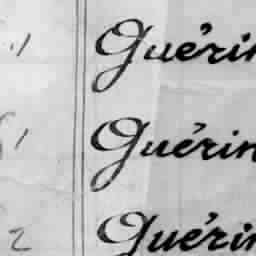 Guérin
Guérin
2 Guérin